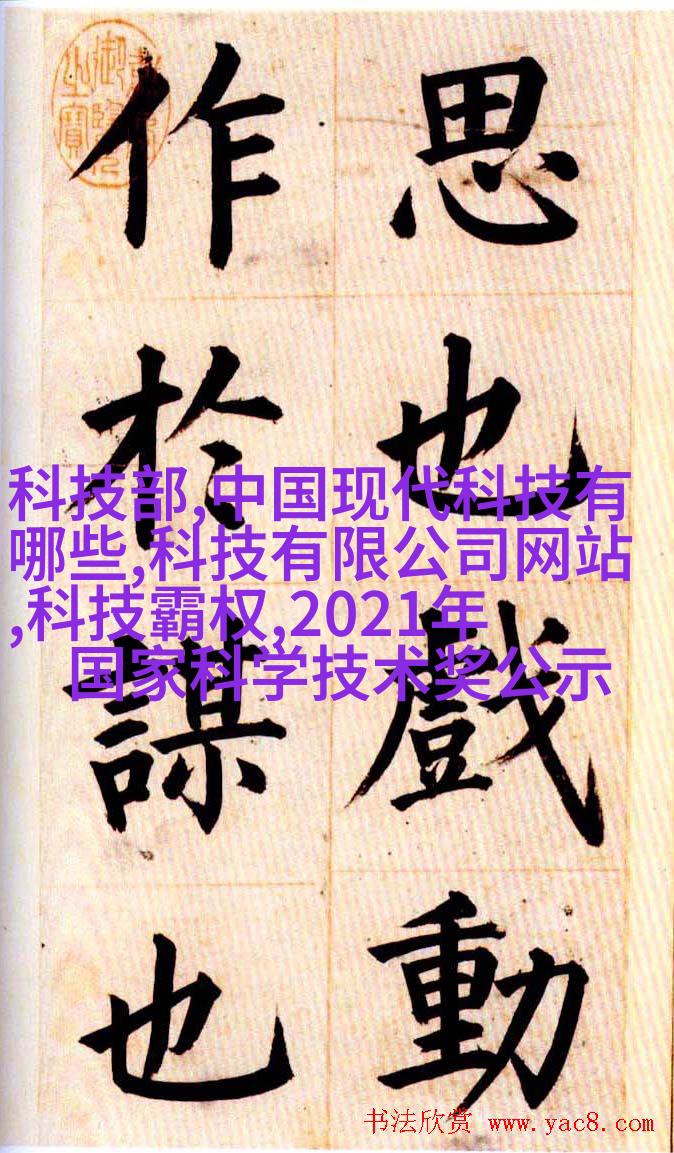 思也戲動
作於謀也
科技部,中国现代科技有
哪些,科技有限公司网站
,科技霸权,2021年
国家科学技术奖公示
书法欣赏 www.yac8.com